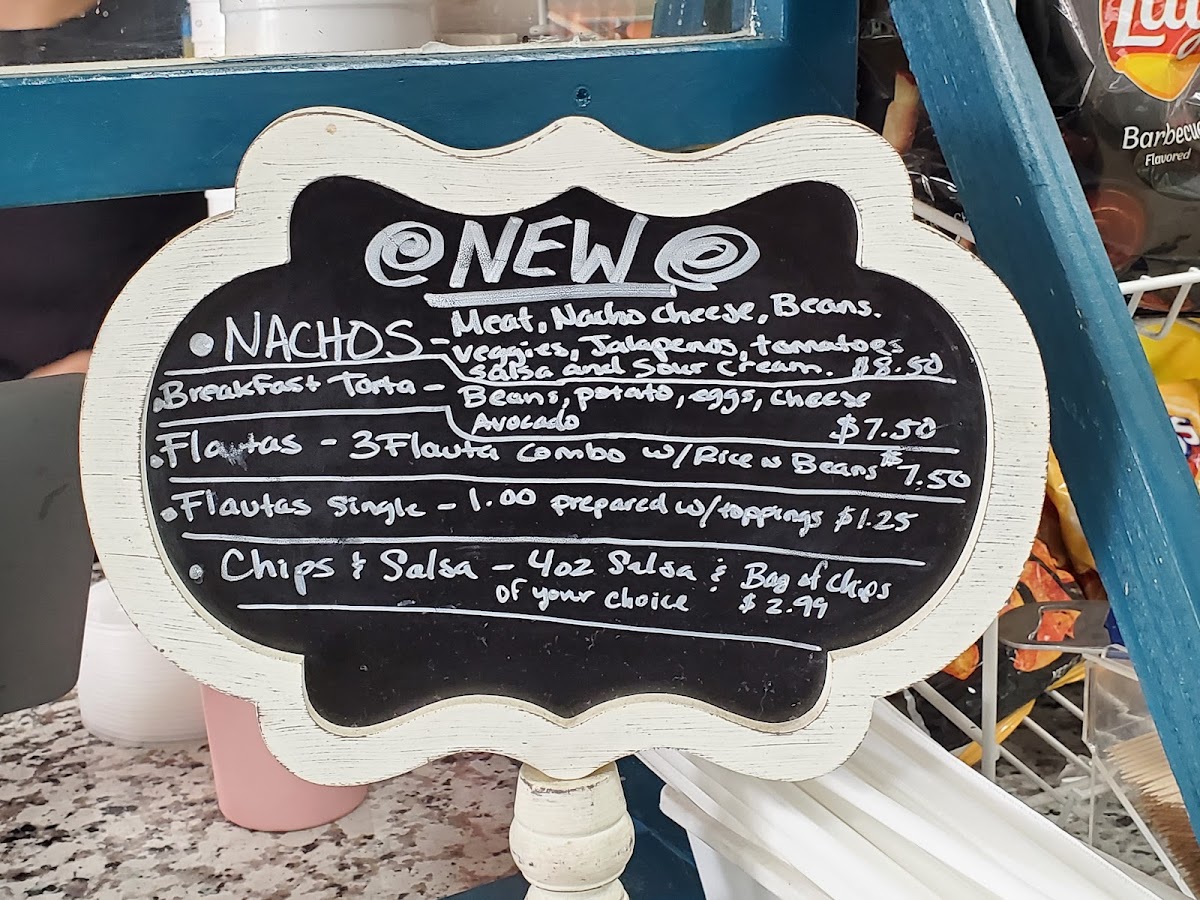 NEW
• NACHOS - Meat, Nacho cheese, Beans.
veggies, Jalapenos, tomatoes
Salsa and Sour cream. $8.50
• Breakfast Torta - Beans, potato, eggs, cheese
Avocado $7.50
• Flautas - 3 Flauta Combo w/Rice n Beans $7.50
• Flautas single - 1.00 prepared w/toppings $1.25
• Chips & Salsa - 4oz Salsa & Bag of chips
of your choice $2.99
Barbecue
Flavored